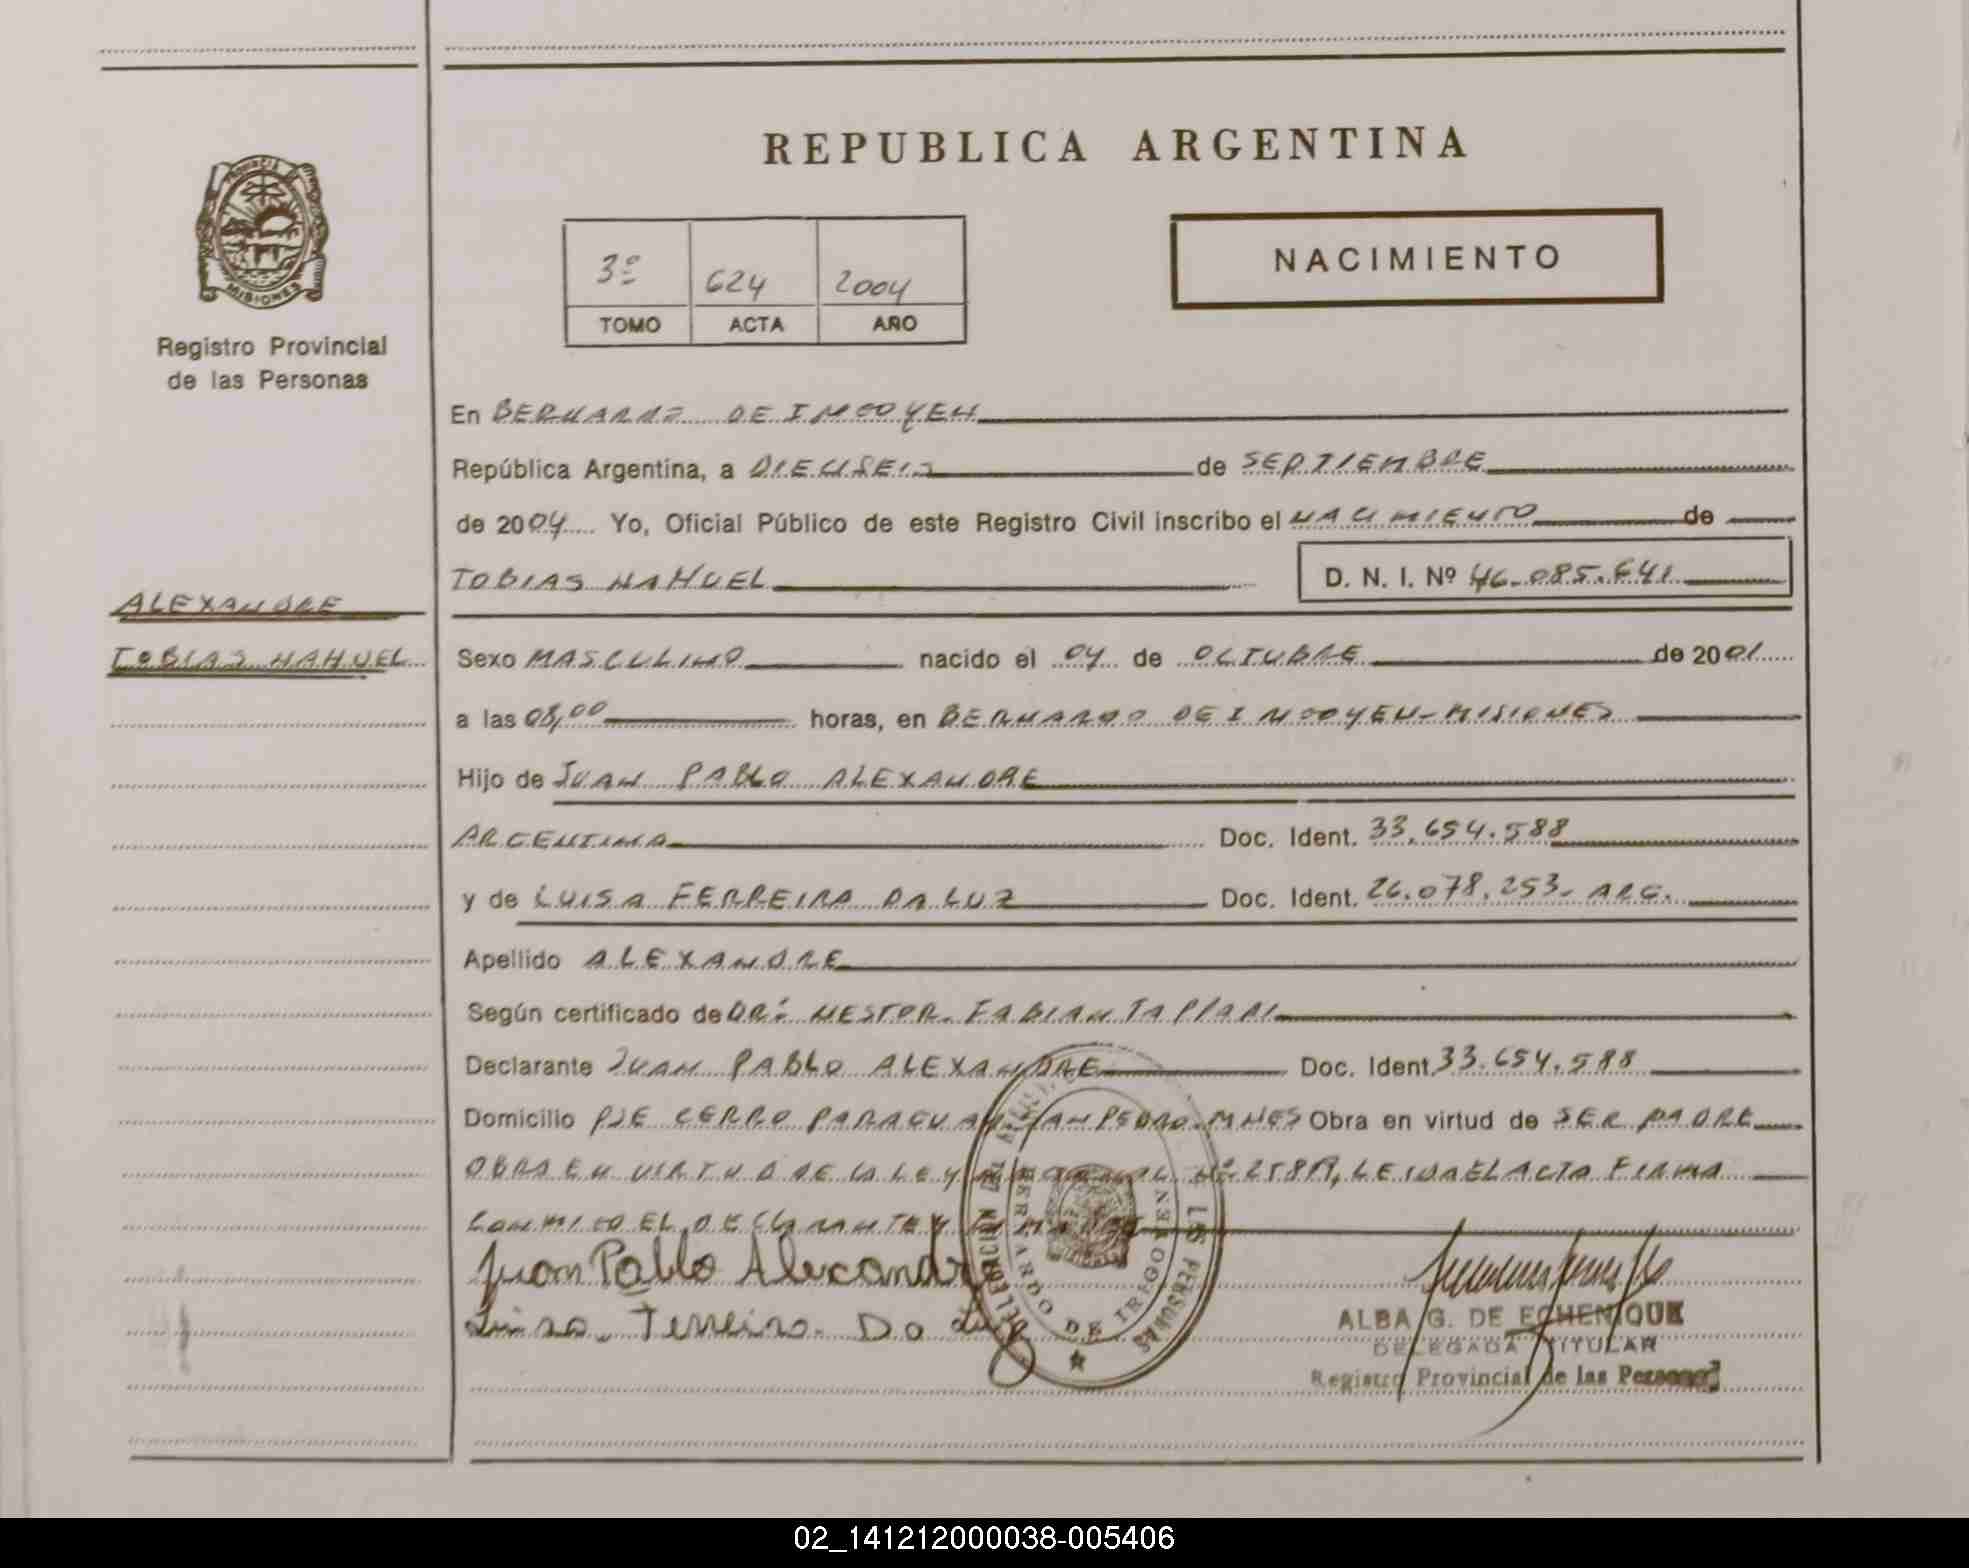 REPUBLICA ARGENTINA
PROVINCIA
MISIONES
Registro Provincial
de las Personas
3º 624 2004
TOMO ACTA AÑO
NACIMIENTO
En BERNARDO DE IRIGOYEN
República Argentina, a DIECISEIS de SEPTIEMBRE
de 2004 Yo, Oficial Público de este Registro Civil inscribo el NACIMIENTO de
TOBIAS NAHUEL D. N. I. Nº 46.085.641
ALEXANDRE
TOBIAS NAHUEL
Sexo MASCULINO nacido el 04 de OCTUBRE de 2001
a las 08,00 horas, en BERNARDO DE IRIGOYEN-MISIONES
Hijo de JUAN PABLO ALEXANDRE
ARGENTINO Doc. Ident. 33.654.588
y de LUISA FERREIRA DA LUZ Doc. Ident. 26.078.253- ARG.
Apellido ALEXANDRE
Según certificado de DR: NESTOR FABIAN TAPPARI
Declarante JUAN PABLO ALEXANDRE Doc. Ident. 33.654.588
Domicilio PJE CERRO PARAGUAY SAN PEDRO-MNES Obra en virtud de SER PADRE
OBRA EN VIRTUD DE LA LEY Nº LEIDA EL ACTA FIRMA
CONMIGO EL DECLARANTE Y
Juan Pablo Alexandre
Luisa Ferreira Da Luz
DELEGACION
BERNARDO DE IRIGOYEN
LAS PERSONAS
ALBA G. DE ECHENIQUE
DELEGADA TITULAR
Registro Provincial de las Personas
02_141212000038-005406